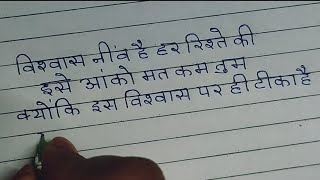 विश्वास नींव है हर रिश्ते की
इसे आंको मत कम तुम
क्योंकि इस विश्वास पर ही टीका है